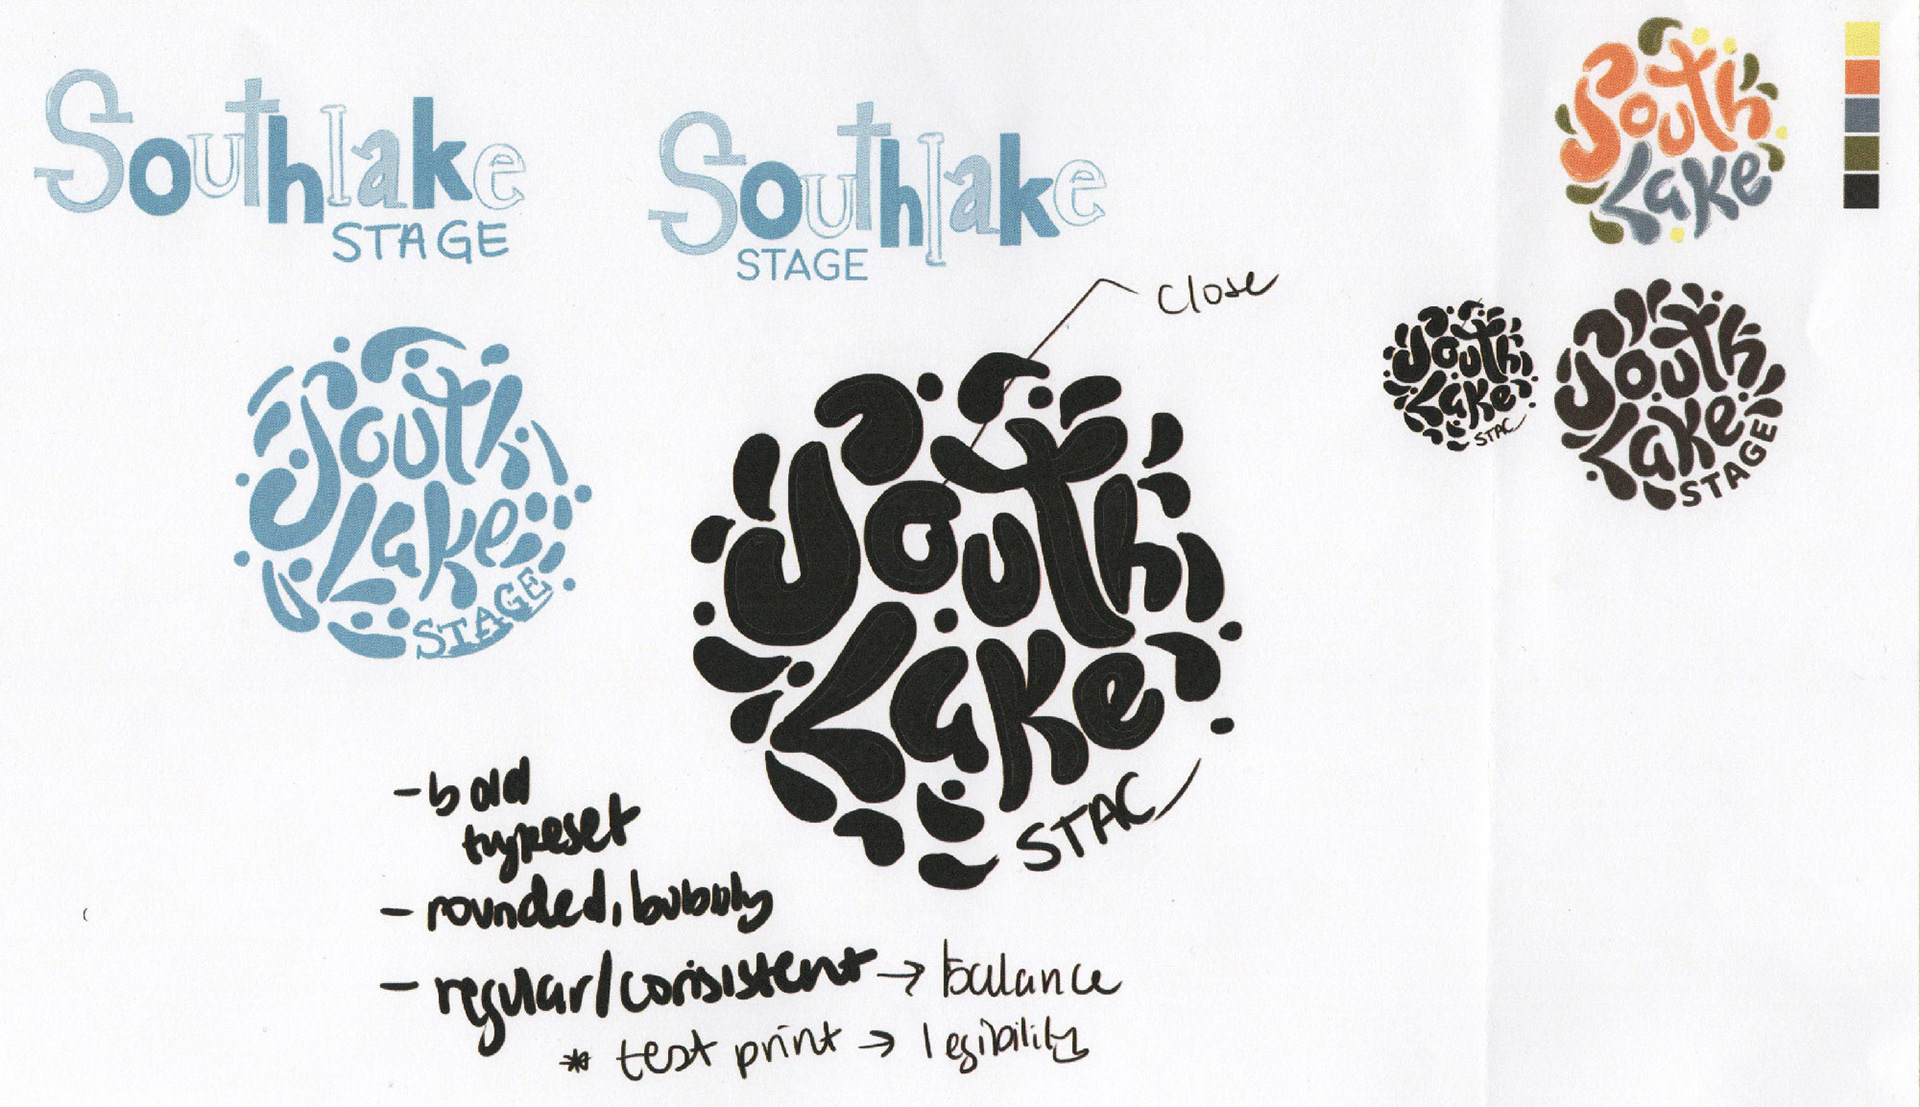 Southlake
STAGE
Southlake
STAGE
South
Lake
close
South
Lake
STAGE
South
Lake
STAC
South
Lake
STAC
South
Lake
STAGE
- bold
typeset
- rounded, bubbly
- regular/consistent → balance
* test print → legibility